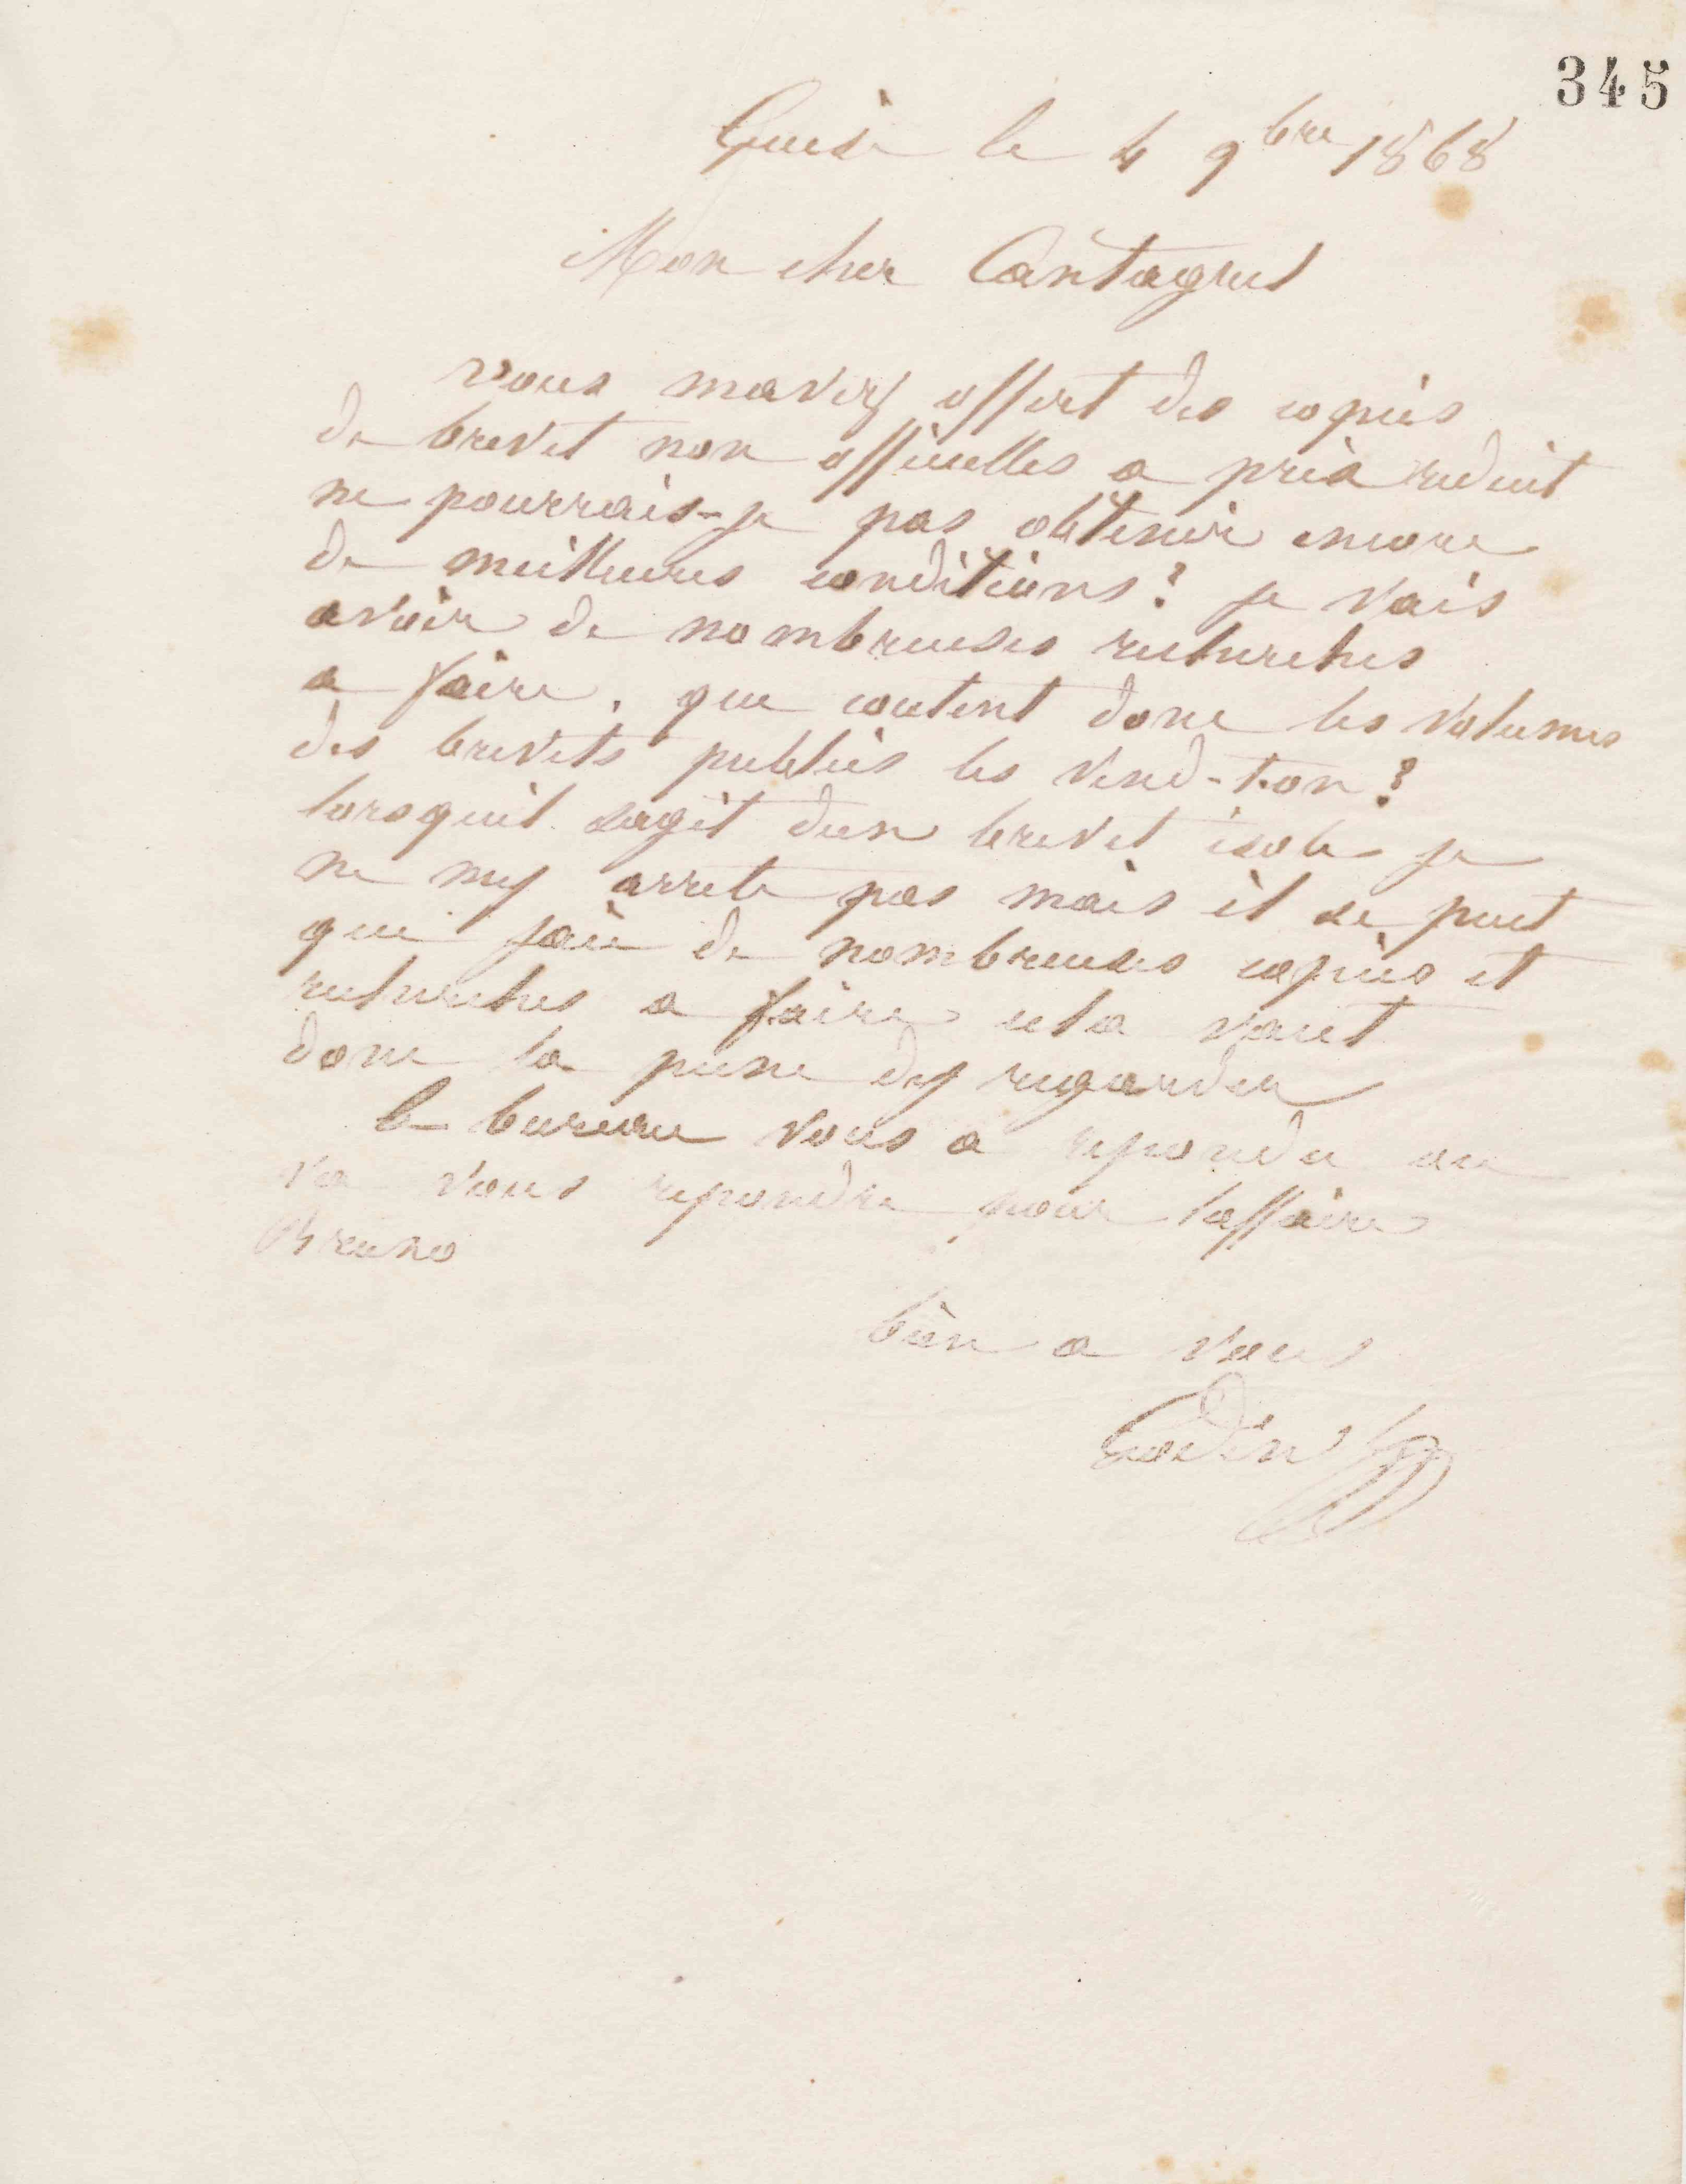 345
Guise le 4 9bre 1868
Mon cher Cantagrel
vous mavez offert des copies
de brevet non officielles a prix reduit
ne pourrais-je pas obtenir encore
de meilleures conditions ? je vais
avoir de nombreuses recherches
a faire. que coutent donc les volumes
des brevets publiés les vend-t-on ?
lorsquil sagit dun brevet isole je
ne my arrete pas mais il se peut
que jaie de nombreuses copies et
recherches a faire cela vaut
donc la peine dy regarder
le bureau vous a repondu ou
va vous repondre pour laffaire
Bruno
bien a vous
Godin